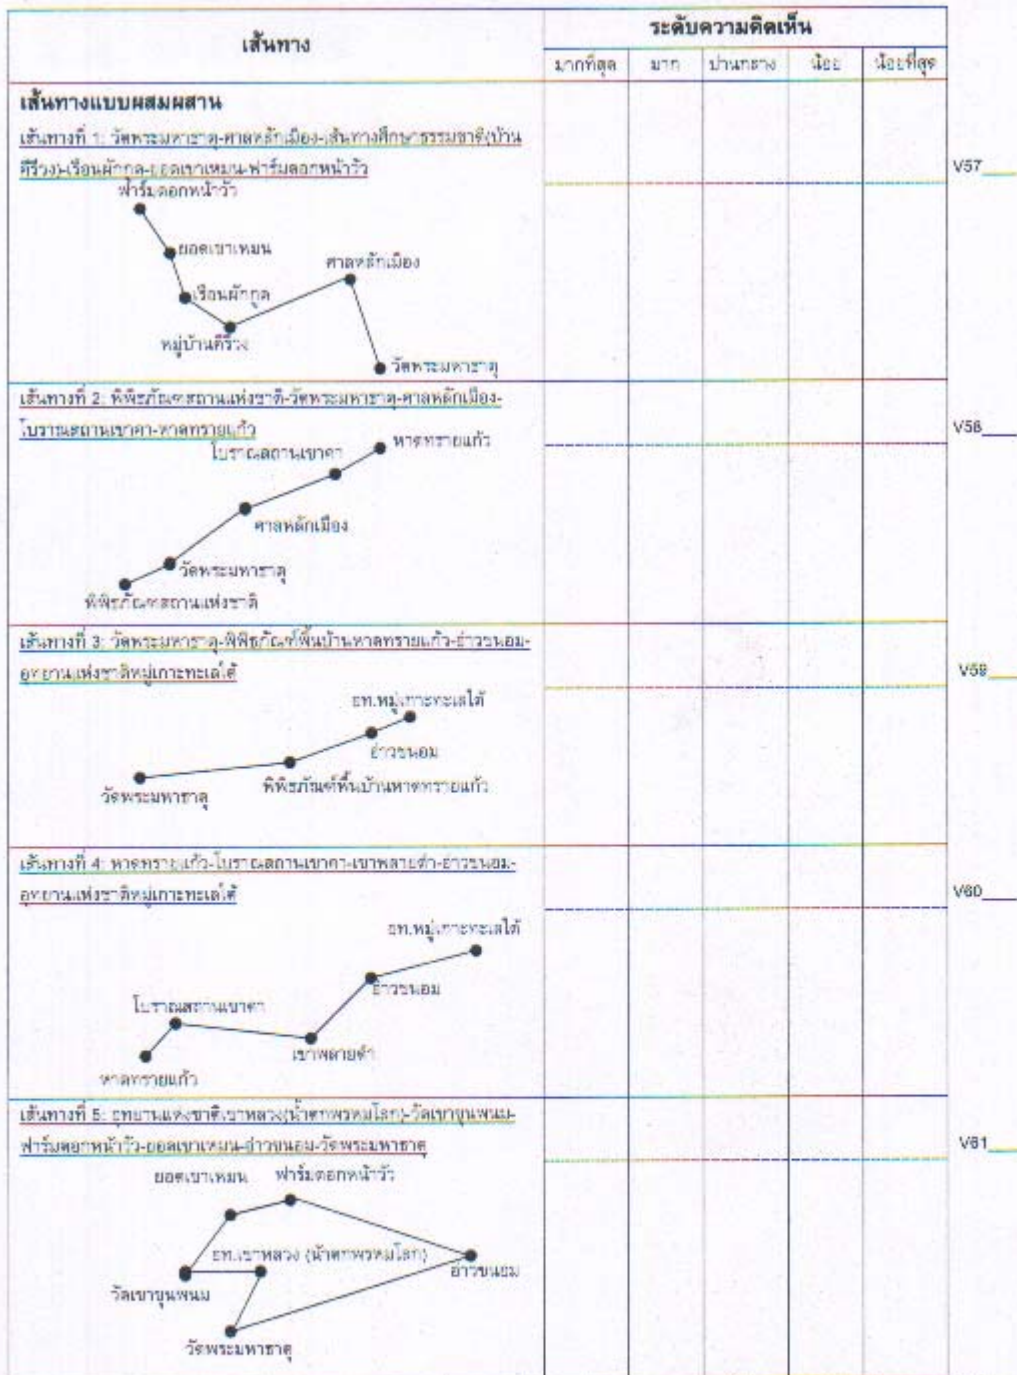 เส้นทาง
ระดับความคิดเห็น
มากที่สุด มาก ปานกลาง น้อย น้อยที่สุด
เส้นทางแบบผสมผสาน
เส้นทางที่ 1: วัดพระมหาธาตุ-ศาลหลักเมือง-เส้นทางศึกษาธรรมชาติ(บ้าน
คีรีวง)-เรือนผักกูด-ยอดเขาเหมน-ฟาร์มดอกหน้าวัว
V57
ฟาร์มดอกหน้าวัว
ยอดเขาเหมน
ศาลหลักเมือง
เรือนผักกูด
หมู่บ้านคีรีวง
วัดพระมหาธาตุ
เส้นทางที่ 2: พิพิธภัณฑสถานแห่งชาติ-วัดพระมหาธาตุ-ศาลหลักเมือง-
โบราณสถานเขาคา-หาดทรายแก้ว
V58
หาดทรายแก้ว
โบราณสถานเขาคา
ศาลหลักเมือง
วัดพระมหาธาตุ
พิพิธภัณฑสถานแห่งชาติ
เส้นทางที่ 3: วัดพระมหาธาตุ-พิพิธภัณฑ์พื้นบ้านหาดทรายแก้ว-อ่าวขนอม-
อุทยานแห่งชาติหมู่เกาะทะเลใต้
V59
อท.หมู่เกาะทะเลใต้
อ่าวขนอม
พิพิธภัณฑ์พื้นบ้านหาดทรายแก้ว
วัดพระมหาธาตุ
เส้นทางที่ 4: หาดทรายแก้ว-โบราณสถานเขาคา-เขาพลายดำ-อ่าวขนอม-
อุทยานแห่งชาติหมู่เกาะทะเลใต้
V60
อท.หมู่เกาะทะเลใต้
อ่าวขนอม
โบราณสถานเขาคา
เขาพลายดำ
หาดทรายแก้ว
เส้นทางที่ 5: อุทยานแห่งชาติเขาหลวง(น้ำตกพรหมโลก)-วัดเขาขุนพนม-
ฟาร์มดอกหน้าวัว-ยอดเขาเหมน-อ่าวขนอม-วัดพระมหาธาตุ
V61
ยอดเขาเหมน ฟาร์มดอกหน้าวัว
อท.เขาหลวง (น้ำตกพรหมโลก)
อ่าวขนอม
วัดเขาขุนพนม
วัดพระมหาธาตุ